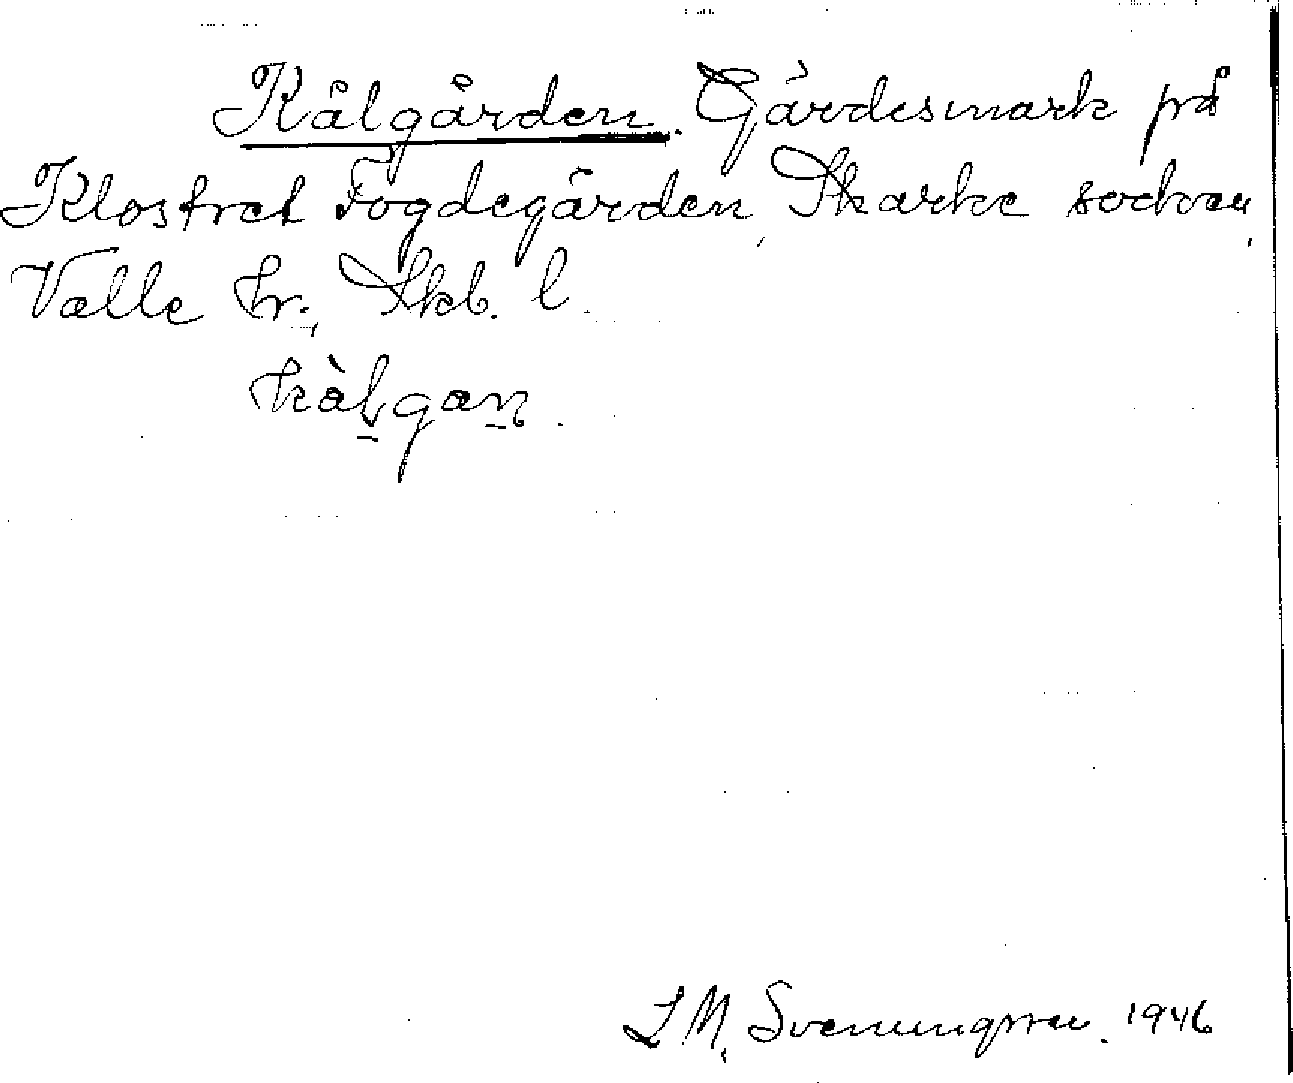 Kålgården. Gärdesmark på
Klostret Fogdegården, Skarke socken,
Valle hr., Skb. l.
kàl̠gan̠.
L M. Svenungsson. 1946